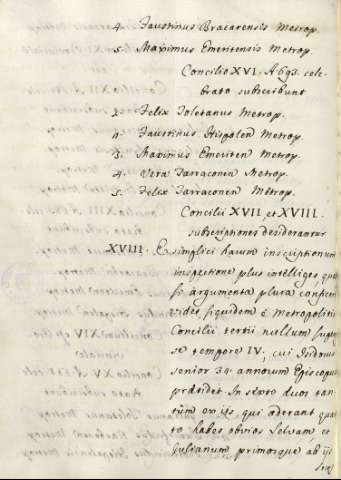 4. Faustinus Bracarensis Metrop.
5. Maximus Emeritensis Metrop.
Concilio XVI. A 693. cele-
brato subscribunt
2. Felix Toletanus Metrop.
Faustinus Hispalen Metrop.
3. Maximus Emeriten Metrop.
4. Vera Tarraconen Metrop.
5. Felix Tarraconen Metrop.
Concilii XVII, et XVIII.
subscriptiones desiderantur
XVIII. E simplici harum inscriptionum
inspectione plus intelliges, quam
si argumenta plura
vides siquidem e Metropolitis
Concilii tertii nullum
se tempore IV; cui Isidorus
senior 34 annorum Episcopus
præsidet. In sexto duos tan-
tum ex iis, qui aderant quar-
to habes obvios Selvam, et
Julianum primosque ab iis